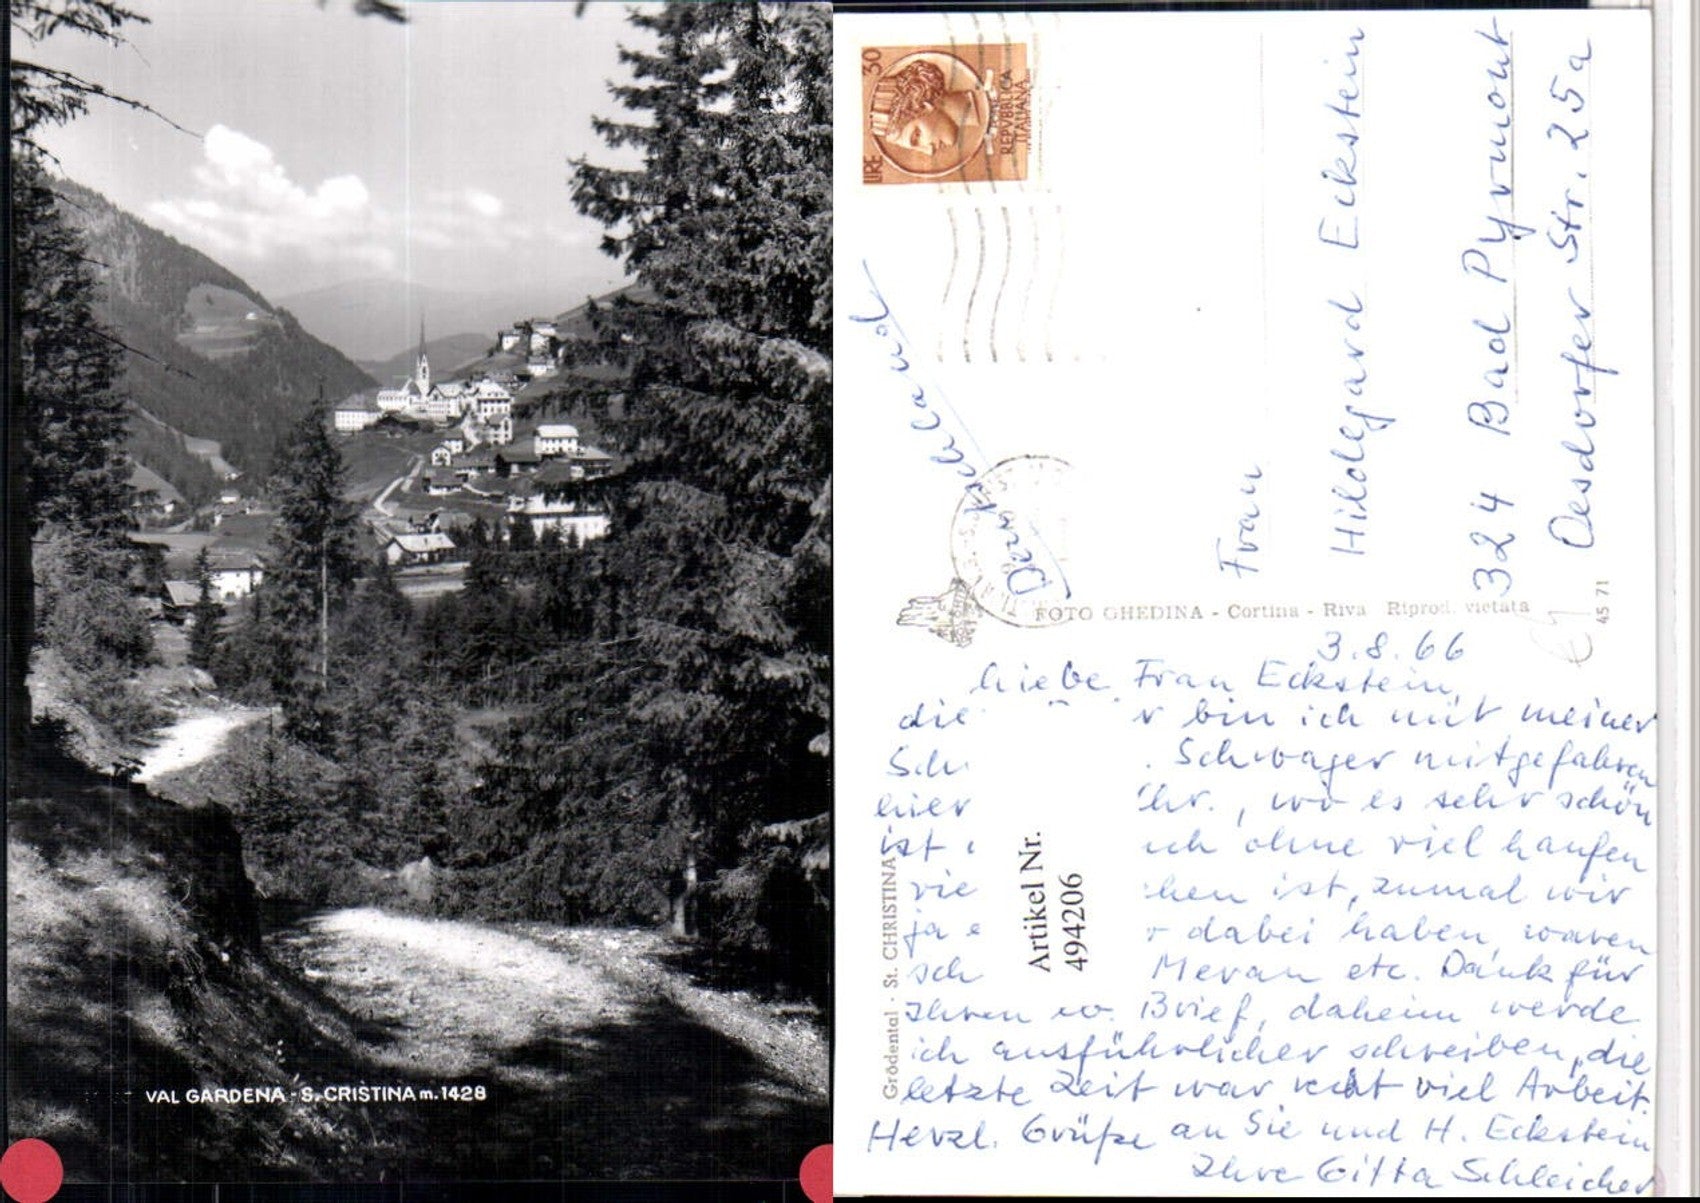 VAL GARDENA - S. CRISTINA m. 1428
30
LIRE
REPVBBLICA
ITALIANA
Deutschland
Frau
Hildegard Eckstein
324 Bad Pyrmont
Oesdorfer Str. 25a
FOTO GHEDINA - Cortina - Riva Riprod. vietata
45 71
Grödental - St. CHRISTINA
Artikel Nr.
494206
3.8.66
Liebe Frau Eckstein,
die bin ich mit meiner
Schwager mitgefahren
hier wo es sehr schön
ist ohne viel laufen
ist, zumal wir
ja dabei haben, waren
Meran etc. Dank für
Ihren Brief, daheim werde
ich ausführlicher schreiben, die
letzte Zeit war recht viel Arbeit.
Herzl. Grüße an Sie und H. Eckstein
Ihre Gitta Schleicher